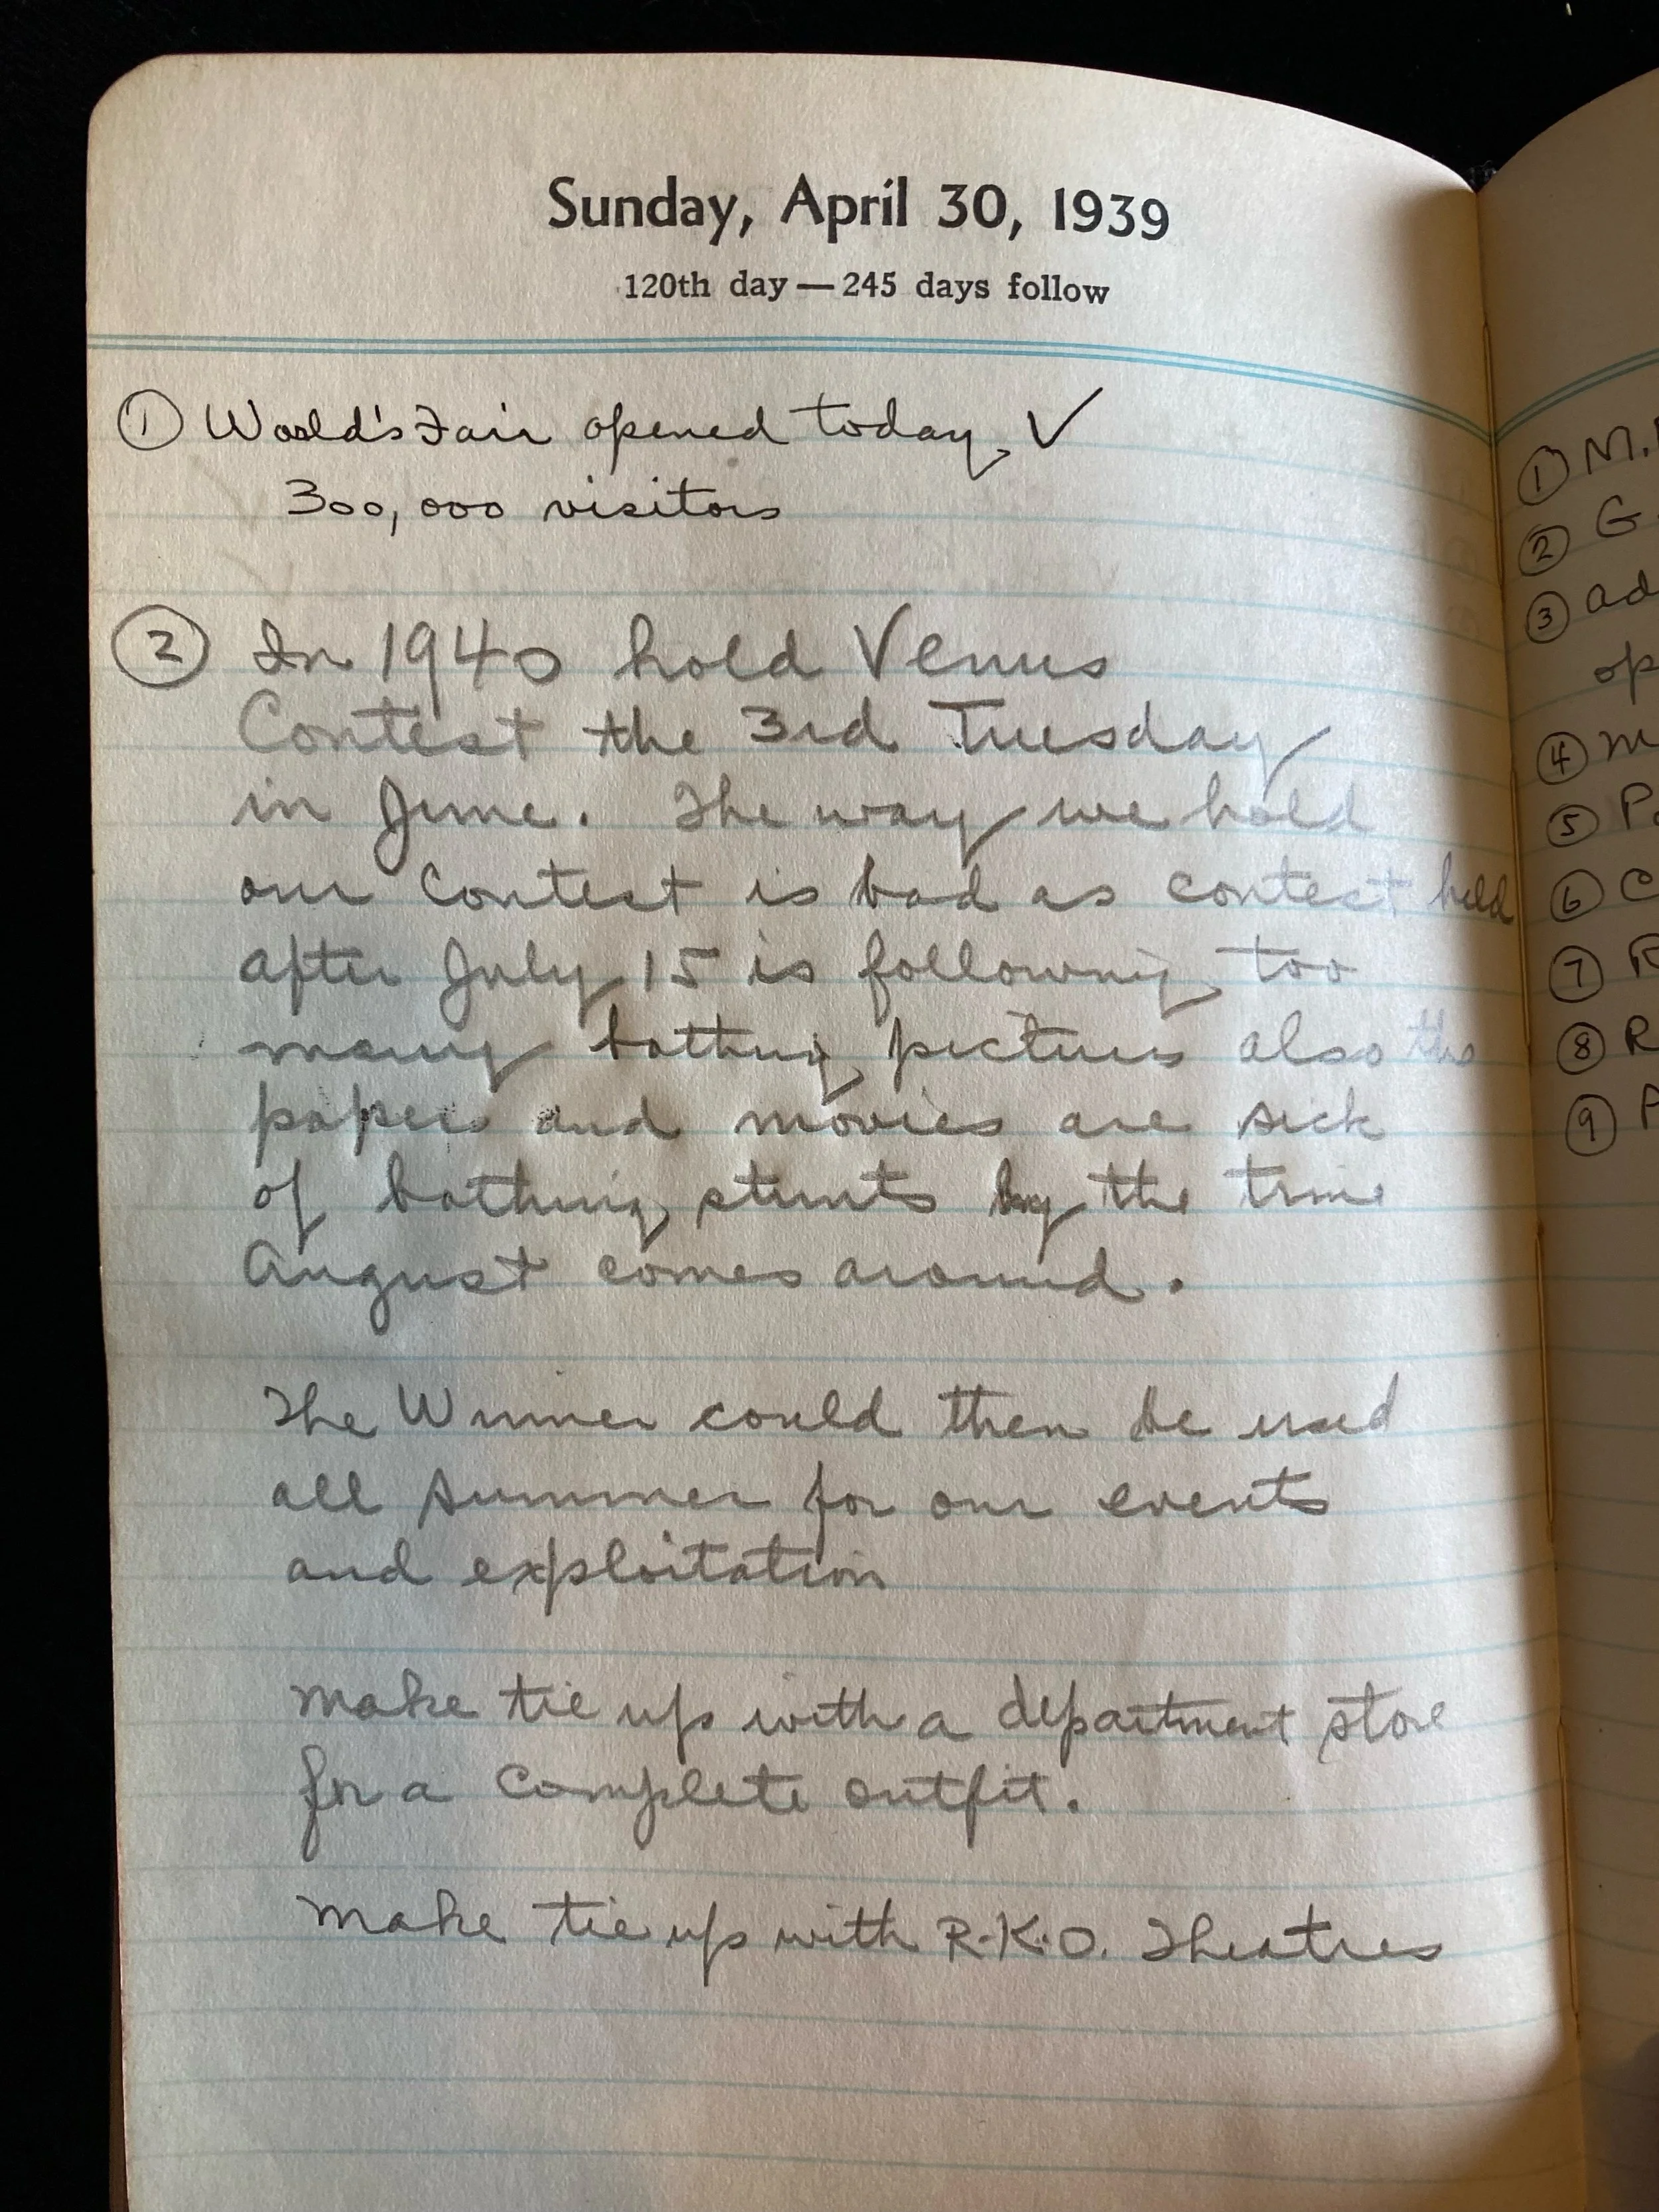 Sunday, April 30, 1939
120th day — 245 days follow
① World's Fair opened today ✓
300,000 visitors
② In 1940 hold Venus
Contest the 3rd Tuesday
in June. The way we hold
our Contest is bad as contest held
after July 15 is following too
many bathing pictures also the
papers and movies are sick
of bathing stunts by the time
August comes around.
The Winner could then be used
all summer for our events
and exploitation
Make tie up with a department store
for a complete outfit.
Make tie up with R.K.O. Theatres
① M.
② G
③ ad
op
④ m
⑤ P
⑥ C
⑦ R
⑧ R
⑨ P